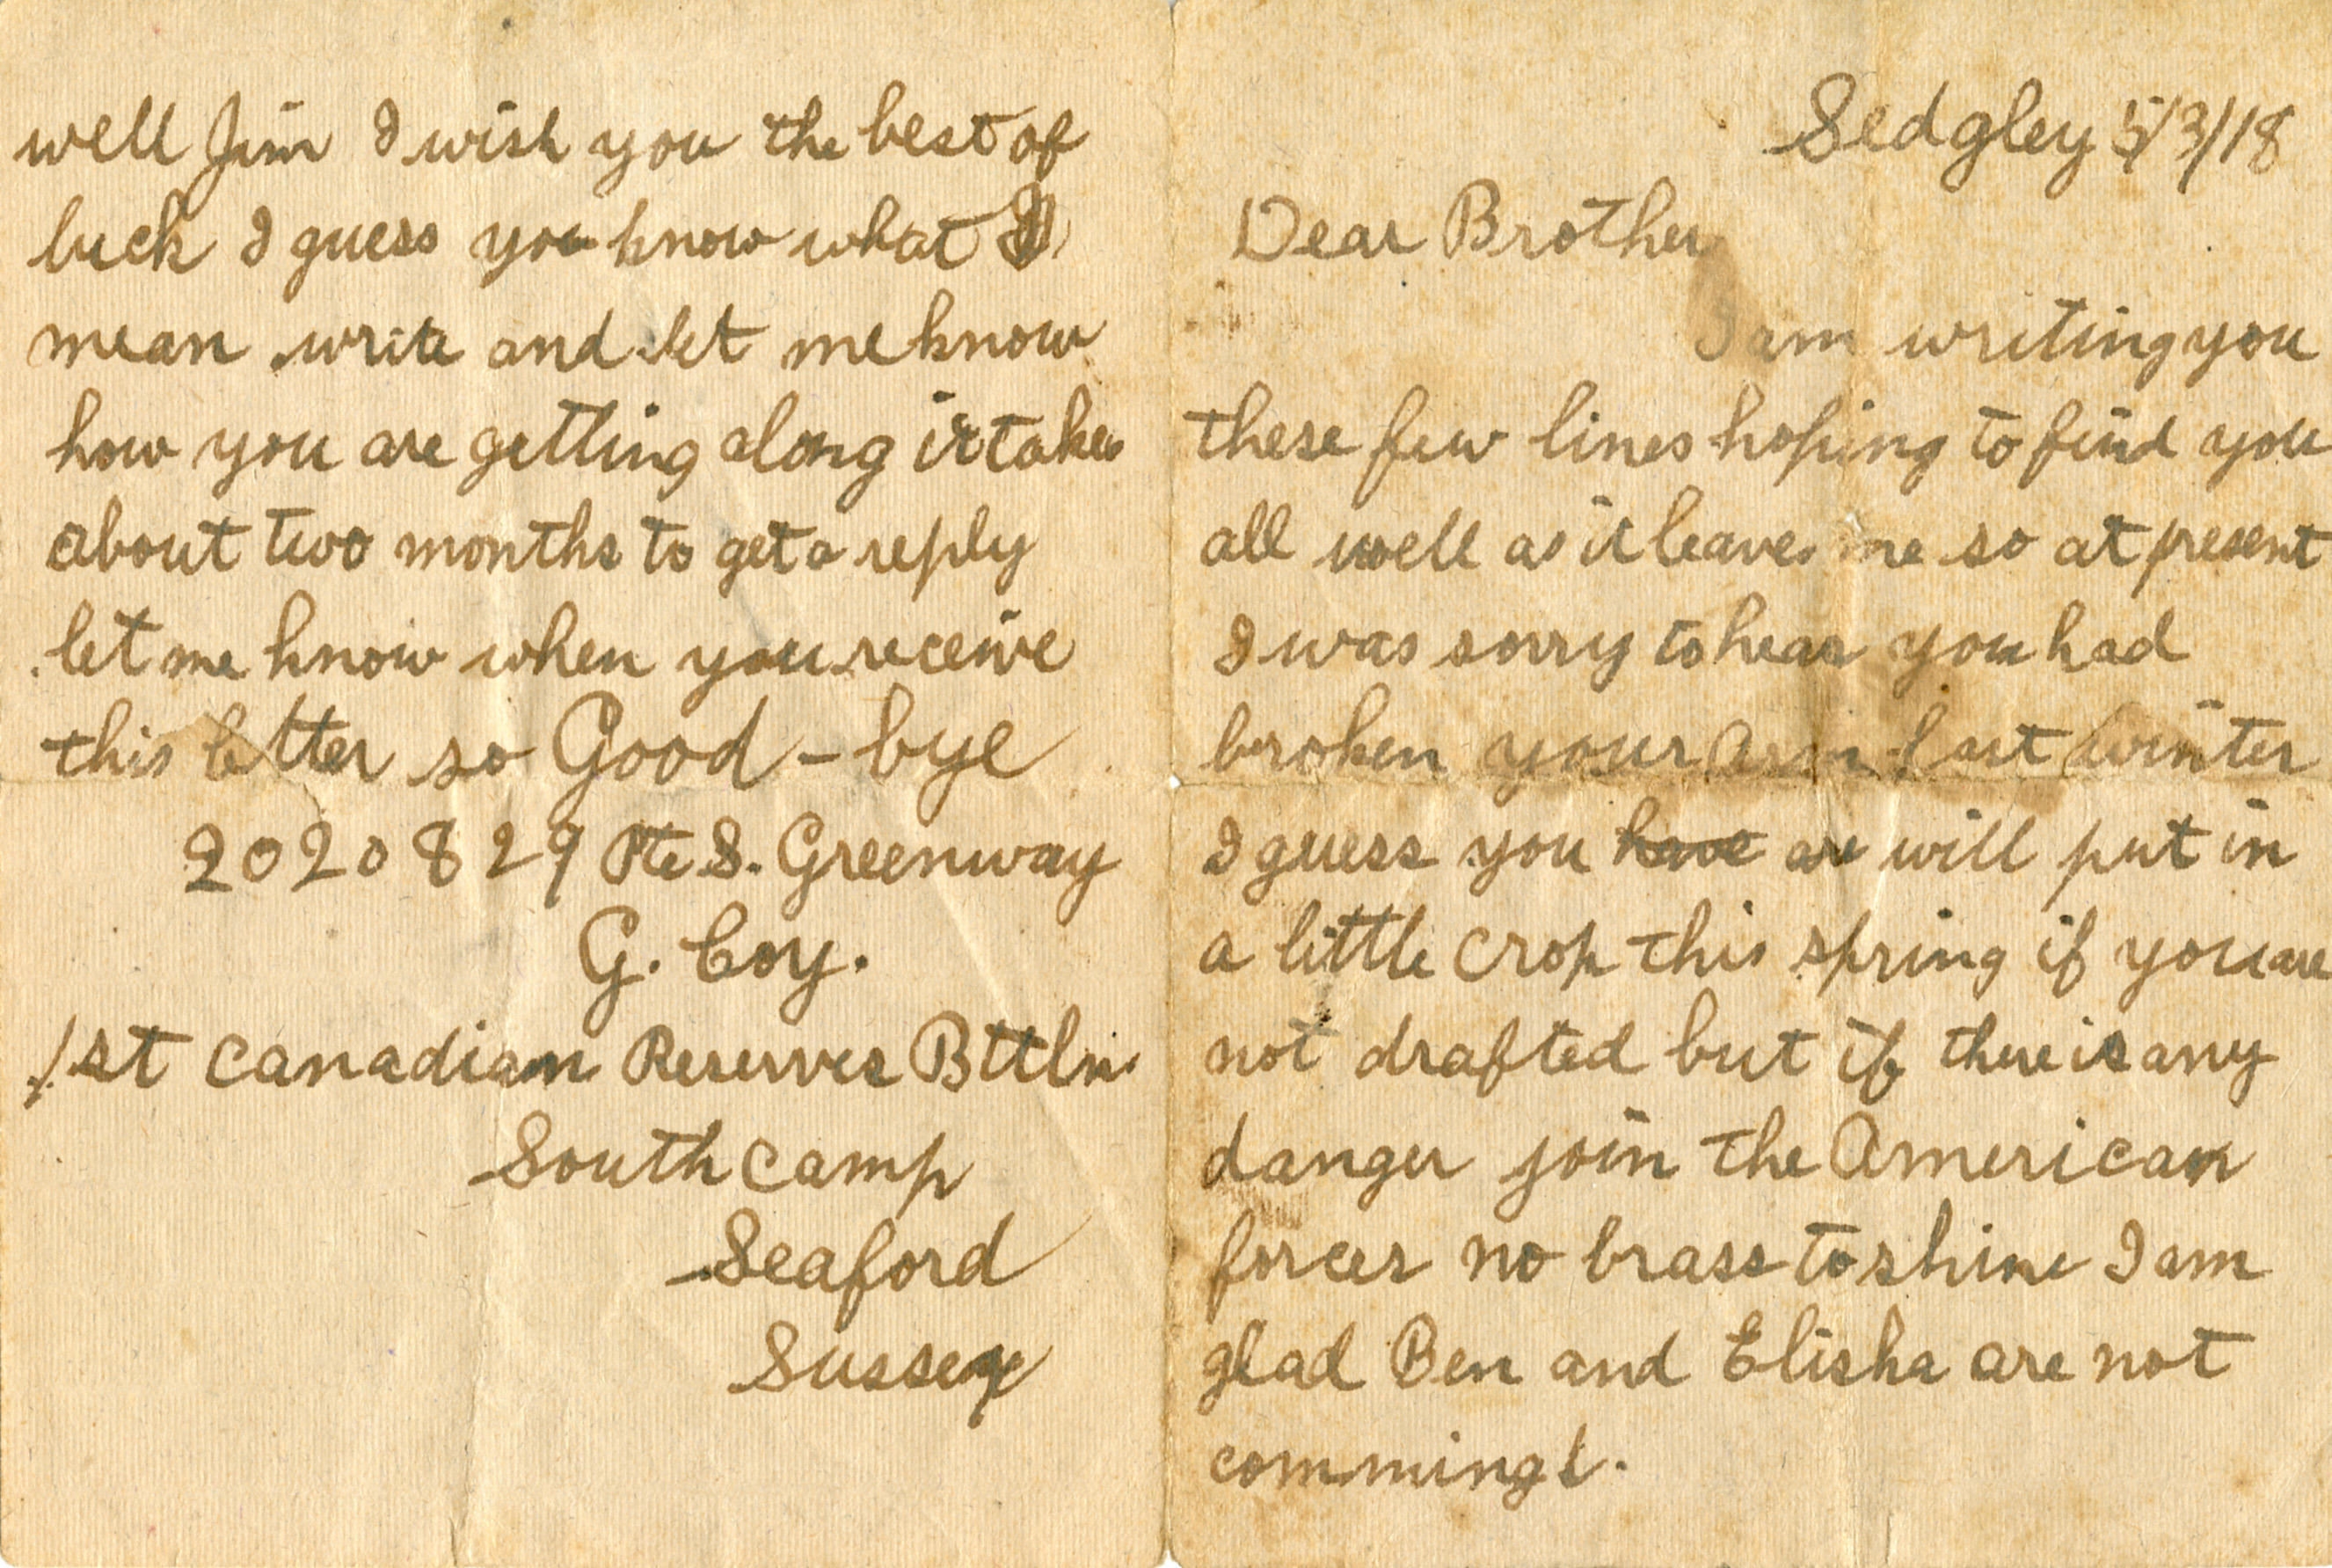 Sedgley 5/3/18
Dear Brother
I am writing you
these few lines hoping to find you
all well as it leaves me so at present
I was sorry to hear you had
broken your arm last winter
I guess you have are will put in
a little crop this spring if you are
not drafted but if there is any
danger join the American
forces no brass to shine I am
glad Ben and Elisha are not
comming.
well Jim I wish you the best of
luck I guess you know what I
mean write and let me know
how you are getting along it takes
about two months to get a reply
let me know when you receive
this letter so Good-bye
2020829 Pte S. Greenway
G. Coy.
1st Canadian Reserves Bttln.
South Camp
Seaford
Sussex